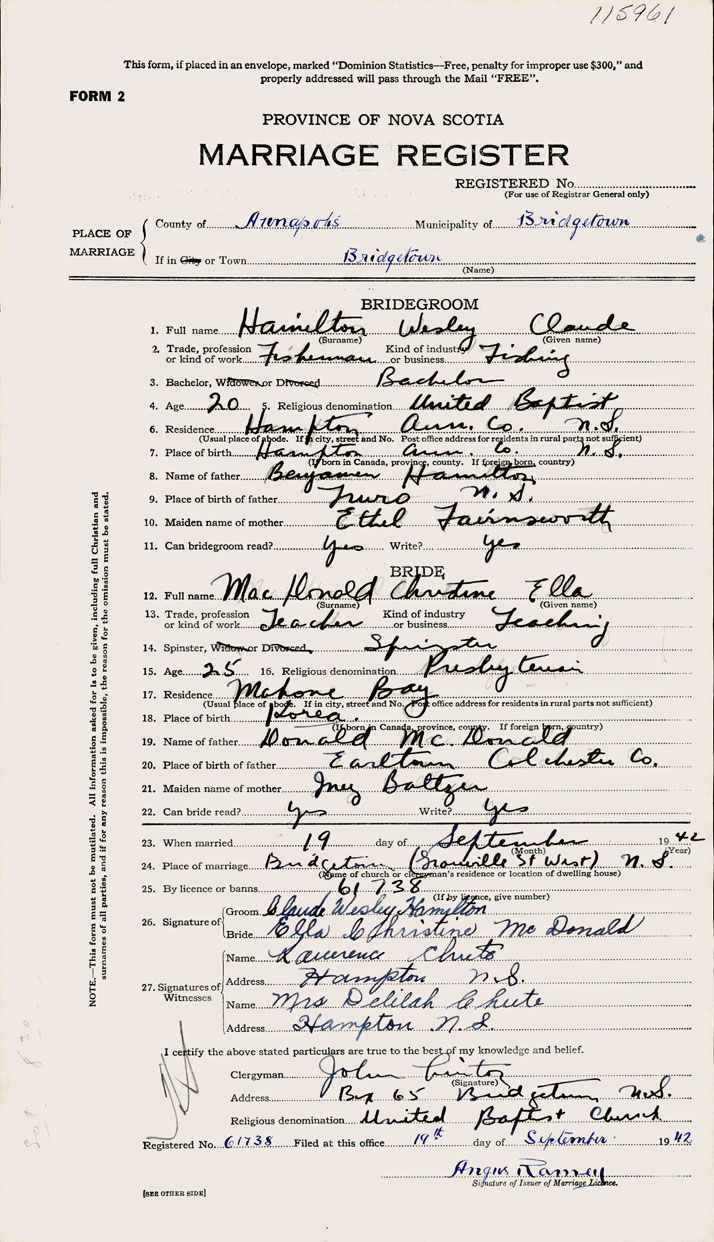 115961
This form, if placed in an envelope, marked "Dominion Statistics—Free, penalty for improper use $300," and
properly addressed will pass through the Mail "FREE".
FORM 2
PROVINCE OF NOVA SCOTIA
MARRIAGE REGISTER
REGISTERED No.
(For use of Registrar General only)
PLACE OF MARRIAGE
County of Annapolis Municipality of Bridgetown
If in City or Town Bridgetown
(Name)
BRIDEGROOM
1. Full name Hamilton Wesley Claude
(Surname) (Given name)
2. Trade, profession or kind of work Fisherman Kind of industry or business Fishing
3. Bachelor, Widower or Divorced Bachelor
4. Age 20 5. Religious denomination United Baptist
6. Residence Hampton Ann. Co. N.S.
(Usual place of abode. If in city, street and No. Post office address for residents in rural parts not sufficient)
7. Place of birth Hampton Ann. Co. N.S.
(If born in Canada, province, county. If foreign born, country)
8. Name of father Benjamin Hamilton
9. Place of birth of father Truro N.S.
10. Maiden name of mother Ethel Fairnsworth
11. Can bridegroom read? Yes Write? Yes
BRIDE
12. Full name Mac Donald Christine Ella
(Surname) (Given name)
13. Trade, profession or kind of work Teacher Kind of industry or business Teaching
14. Spinster, Widow or Divorced, Spinster
15. Age 25 16. Religious denomination Presbyterian
17. Residence Mahone Bay
(Usual place of abode. If in city, street and No. Post office address for residents in rural parts not sufficient)
18. Place of birth Korea.
(If born in Canada, province, county. If foreign born, country)
19. Name of father Donald Mc. Donald
20. Place of birth of father Earltown Colchester Co.
21. Maiden name of mother Inez Baltzer
22. Can bride read? Yes Write? Yes
23. When married 19 day of September 1942
(Month) (Year)
24. Place of marriage Bridgetown (Granville St West) N.S.
(Name of church or clergyman's residence or location of dwelling house)
25. By licence or banns 61738
(If by licence, give number)
26. Signature of Groom Claude Wesley Hamilton
Bride Ella Christine Mc Donald
27. Signatures of Witnesses
Name Lawrence Chute
Address Hampton N.S.
Name Mrs Delilah Chute
Address Hampton N.S.
I certify the above stated particulars are true to the best of my knowledge and belief.
Clergyman John
(Signature)
Address Box 65 Bridgetown N.S.
Religious denomination United Baptist Church
Registered No. 61738 Filed at this office 19th day of September 1942
Angus Ramey
Signature of Issuer of Marriage Licence.
[SEE OTHER SIDE]
NOTE.—This form must not be mutilated. All information asked for is to be given, including full Christian and
surnames of all parties, and if for any reason this is impossible, the reason for the omission must be stated.